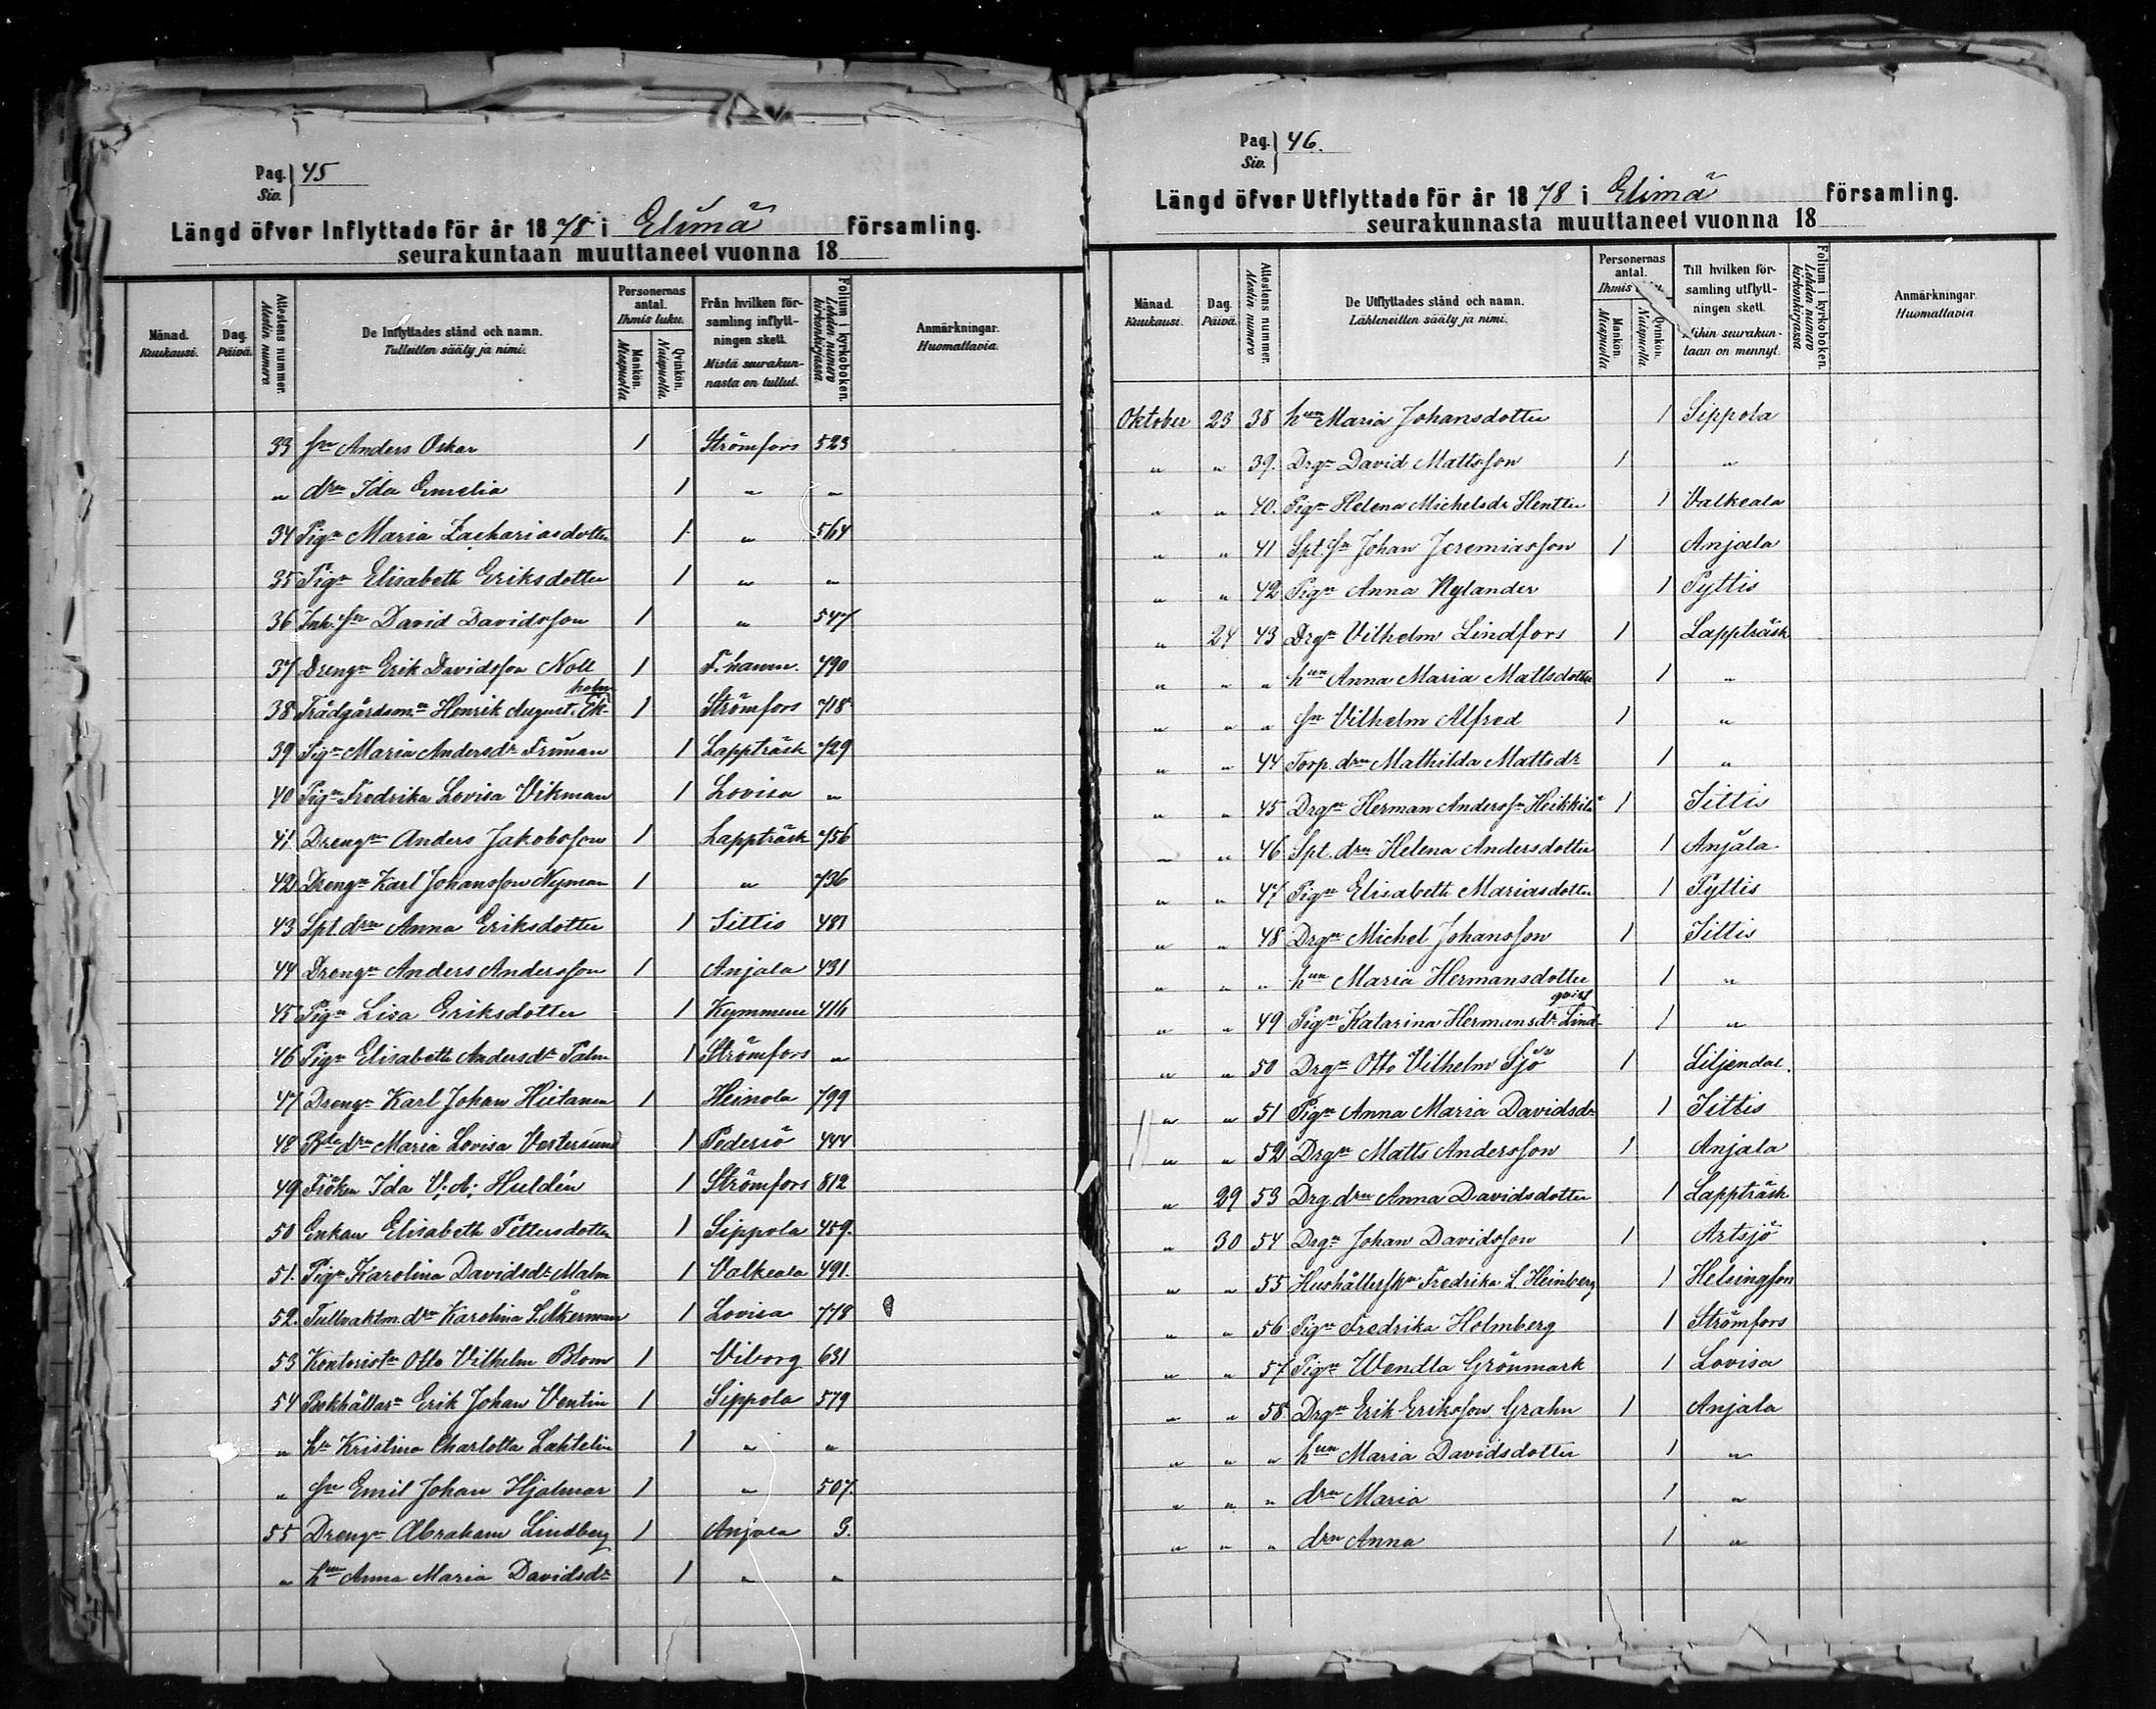 Pag. Siv. } 45
Längd öfver Inflyttade för år 1878 i Elimä församling.
seurakuntaan muuttaneet vuonna 18
Månad. Kuukausi. Dag. Päivä. Attestens nummer. Alestin numero De Inflyttades stånd och namn. Tulleitten sääty ja nimi. Personernas antal. Ihmis luku. Mankön. Miespuolia Qvinkön. Naispuolia. Från hvilken församling inflyttningen skett. Mistä seurakunnasta on tullut. Folium i kyrkoboken. Lehden numero kirkonkirjassa Anmärkningar. Huomattavia.
33 sn Anders Oskar 1 Strömfors 523
" drn Ida Emelia 1 " "
34 Pign Maria Zachariasdotter 1 " 564
35 Pign Elisabeth Eriksdotter 1 " "
36 Inh. sn David Davidsson 1 " 547
37 Drengn Erik Davidsson Noll 1 F. hamn. 490
38 Trädgårdsmn Henrik August Ekholm 1 Strömfors 718
39 Pign Maria Andersdr Friman 1 Lappträsk 729
40 Pign Fredrika Lovisa Vikman 1 Lovisa "
41 Drengn Anders Jakobsson 1 Lappträsk 756
42 Drengn Karl Johansson Nyman 1 " 736
43 Spt. drn Anna Eriksdotter 1 Iittis 481
44 Drengn Anders Andersson 1 Anjala 431
45 Pign Lisa Eriksdotter 1 Kymmene 416
46 Pign Elisabeth Andersdr Palm 1 Strömfors "
47 Drengn Karl Johan Hietanen 1 Heinola 799
48 Bde drn Maria Lovisa Vestersund 1 Pedersö 444
49 Fröken Ida V. A. Huldén 1 Strömfors 812
50 Enkan Elisabeth Pettersdotter 1 Sippola 459.
51. Pign Karolina Davidsdr Malm 1 Valkeala 491.
52. Tullvaktm. drn Karolina S. Åkerman 1 Lovisa 778
53 Kontoristn Otto Vilhelm Blom 1 Viborg 631
54 Bokhållarn Erik Johan Ventin 1 Sippola 579
" hu Kristina Charlotta Lahtelin 1 " "
" sn Emil Johan Hjalmar 1 " 507.
55 Drengn Abraham Lindberg 1 Anjala 9.
" hun Anna Maria Davidsdr 1 " "
Pag. Siv. } 46.
Längd öfver Utflyttade för år 1878 i Elimä församling.
seurakunnasta muuttaneet vuonna 18
Månad. Kuukausi. Dag. Päivä. Attestens nummer. Alestin numero De Utflyttades stånd och namn. Lähteneitten sääty ja nimi. Personernas antal. Ihmis Mankön. Miespuolia Qvinkön. Naispuolia. Till hvilken församling utflyttningen skett. Mihin seurakuntaan on mennyt. Folium i kyrkoboken. Lehden numero kirkonkirjassa Anmärkningar. Huomattavia
Oktober 23 38 hun Maria Johansdotter 1 Sippola
" " 39. Drgn David Mattsson 1 "
" " 40. Pign Helena Michelsdr Hentter 1 Valkeala
" " 41 Spt. sn Johan Jeremiasson 1 Anjala
" " 42 Pign Anna Nylander 1 Pyttis
" 24 43 Drgn Vilhelm Lindfors 1 Lappträsk
" " " hun Anna Maria Mattsdotter 1 "
" " " sn Vilhelm Alfred 1 "
" " 44 Torp. drn Mathilda Mattsdr 1 "
" " 45 Drgn Herman Anderssn Heikkilä 1 Iittis
" " 46 Spt. drn Helena Andersdotter 1 Anjala
" " 47 Pign Elisabeth Mariasdotter 1 Pyttis
" " 48 Drgn Michel Johansson 1 Iittis
" " " hun Maria Hermansdotter 1 "
" " 49 Pign Katarina Hermansdr Lindqvist 1 "
" " 50 Drgn Otto Vilhelm Sjö 1 Liljendal.
" " 51 Pign Anna Maria Davidsdr 1 Iittis
" " 52 Drgn Matts Andersson 1 Anjala
" 29 53 Drg. drn Anna Davidsdotter 1 Lappträsk
" 30 54 Drgn Johan Davidsson 1 Artsjö
" " 55 Hushållerskn Fredrika L. Heinberg 1 Helsingfors
" " 56 Pign Fredrika Holmberg 1 Strömfors
" " 57 Pign Wendla Grönmark 1 Lovisa
" " 58 Drgn Erik Eriksson Grahn 1 Anjala
" " " hun Maria Davidsdotter 1 "
" " " drn Maria 1 "
" " " drn Anna 1 "